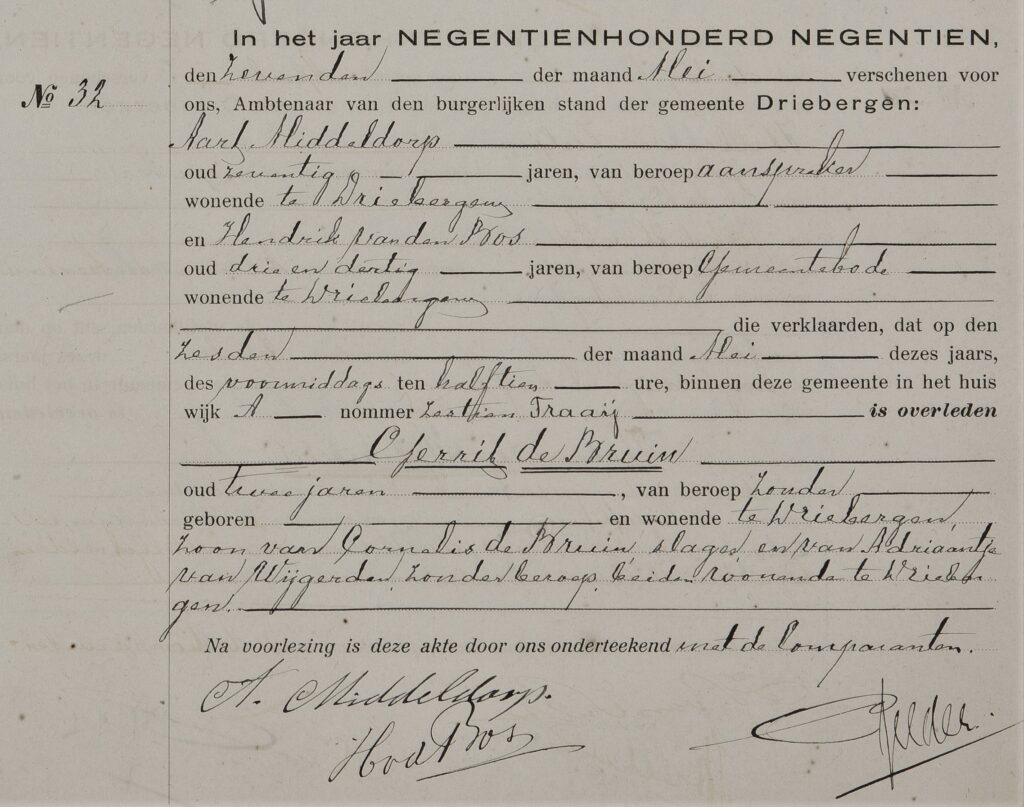 In het jaar NEGENTIENHONDERD NEGENTIEN,
No 32
den zevenden der maand Mei verschenen voor
ons, Ambtenaar van den burgerlijken stand der gemeente Driebergen:
Aart Middeldorp
oud zeventig jaren, van beroep aanspreker
wonende te Driebergen
en Hendrik van den Bos
oud drie en dertig jaren, van beroep Gemeentebode
wonende te Driebergen
die verklaarden, dat op den
zesden der maand Mei dezes jaars,
des voormiddags ten halftien ure, binnen deze gemeente in het huis
wijk A nommer zestien Traaij is overleden
Gerrit de Bruin
oud twee jaren, van beroep zonder
geboren en wonende te Driebergen,
zoon van Cornelis de Bruin slager en van Adriaantje
van Wijgerden zonder beroep beiden wonende te Drieber
gen.
Na voorlezing is deze akte door ons onderteekend met de Comparanten.
A. Middeldorp.
HvdBos